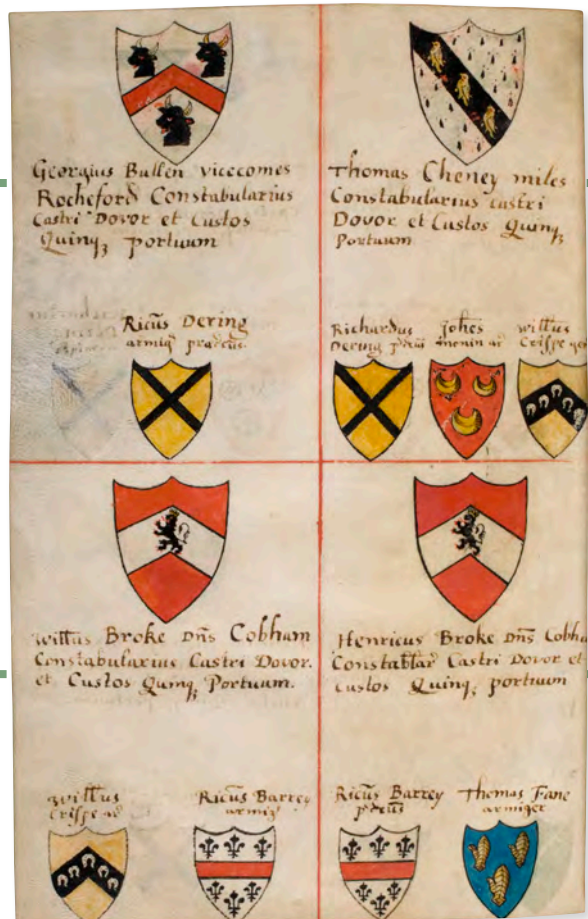 Georgius Bullen vicecomes
Rocheford Constabularius
Castri Dovor et Custos
Quinqꝫ portuum
Ricūs Dering
armigꝰ
Thomas Cheney miles
Constabularius castri
Dovor et Custos Quinqꝫ
Portuum
Richardus
Dering
Johēs
Monin ar
willūs
Crispe
willūs Broke Dn̄s Cobham
Constabularius Castri Dovor.
et Custos Quinqꝫ Portuum.
willūs
Crispe ar
Ricūs Barrey
armig
Henricus Broke Dn̄s Cobha
Castri Dovor et
Custos Quinqꝫ portuum
Ricūs Barrey
Thomas Fane
armiger